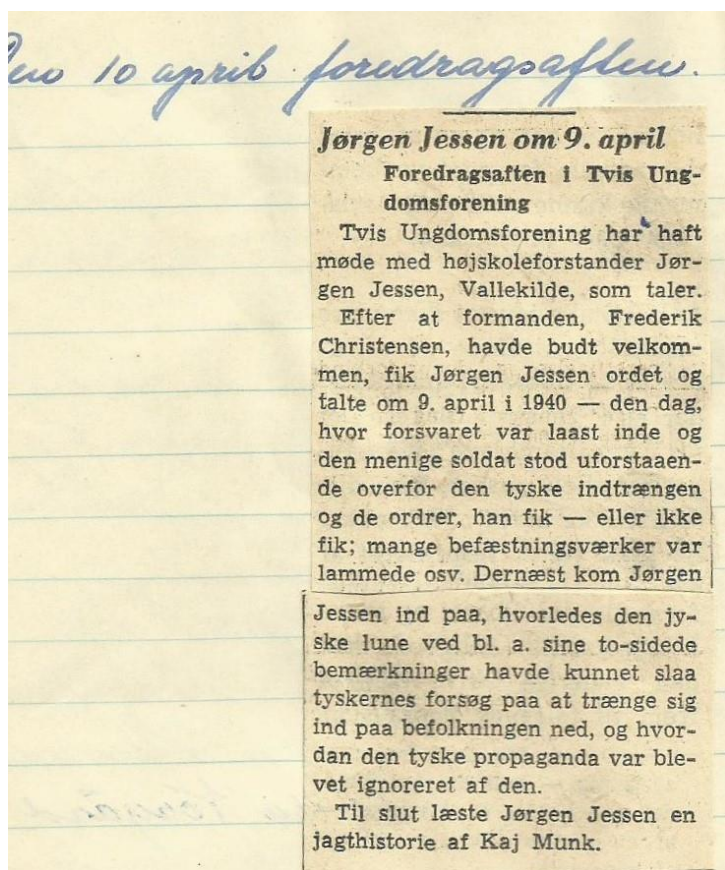 Den 10 april foredragsaften.
Jørgen Jessen om 9. april
Foredragsaften i Tvis Ung-
domsforening
Tvis Ungdomsforening har haft
møde med højskoleforstander Jør-
gen Jessen, Vallekilde, som taler.
Efter at formanden, Frederik
Christensen, havde budt velkom-
men, fik Jørgen Jessen ordet og
talte om 9. april i 1940 — den dag,
hvor forsvaret var laast inde og
den menige soldat stod uforstaaen-
de overfor den tyske indtrængen
og de ordrer, han fik — eller ikke
fik; mange befæstningsværker var
lammede osv. Dernæst kom Jørgen
Jessen ind paa, hvorledes den jy-
ske lune ved bl. a. sine to-sidede
bemærkninger havde kunnet slaa
tyskernes forsøg paa at trænge sig
ind paa befolkningen ned, og hvor-
dan den tyske propaganda var ble-
vet ignoreret af den.
Til slut læste Jørgen Jessen en
jagthistorie af Kaj Munk.